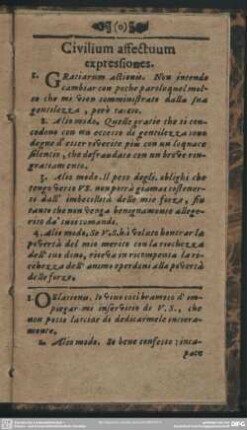 (0)
Civilium affectuum
expressiones.
1. GRatiarum actionis. Non intendo
cambiar con poche parole quel mol-
to che mi vien somministrato dalla sua
gentilezza, però taccio.
2. Alio modo. Quelle gratie che si con-
cedono con un eccesso di gentilezza sono
degne d'esser riverite più con un loquace
silentio, che defraudate con un breve rin-
gratiamento.
3. Alio modo. Il peso degli oblighi che
tengo verso VS. non potrà giamai sostener-
si dall' imbecillità delle mie forze, fin
tanto che non venga benignamente allege-
rito da' suoi comandi.
4. Alio modo. Se V.S. hà voluto honorar la
povertà del mio merito con la ricchezza
dell' , riceva in ricompensa la ri-
chezza dell' animo della povertà
delle forze.
1. OBlationis. Io vivo così bramoso d' im-
piegar mi in servitio di V.S., che
non posso lasciar di dedicarmele intiera-
mente.
2. Alio modo. Se bene confesso: inca-
pace